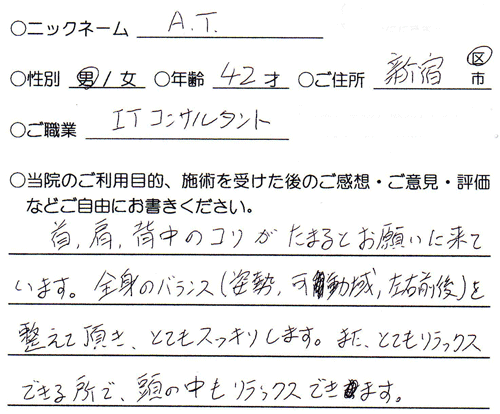 ○ニックネーム A.T.
○性別 男/女 ○年齢 42才 ○ご住所 新宿 区 市
○ご職業 ITコンサルタント
○当院のご利用目的、施術を受けた後のご感想・ご意見・評価
などご自由にお書きください。
首,肩,背中のコリがたまるとお願いに来て
います。全身のバランス(姿勢,可動域,左右前後)を
整えて頂き、とてもスッキリします。また、とてもリラックス
できる所で、頭の中もリラックスできます。